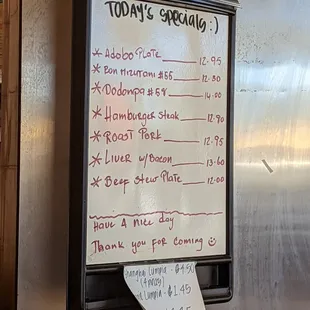 TODAY'S SPECIALS :)
* Adobo Plate 12.95
* Bon Mizutani #55 12.30
* Dodonpa #58 14.00
* Hamburger Steak 12.90
* Roast Pork 12.95
* Liver w/Bacon 13.60
* Beef Stew Plate 12.00
Have A nice day
Thank you for coming ☺
Lumpia - $4.50
Lumpia - $1.45